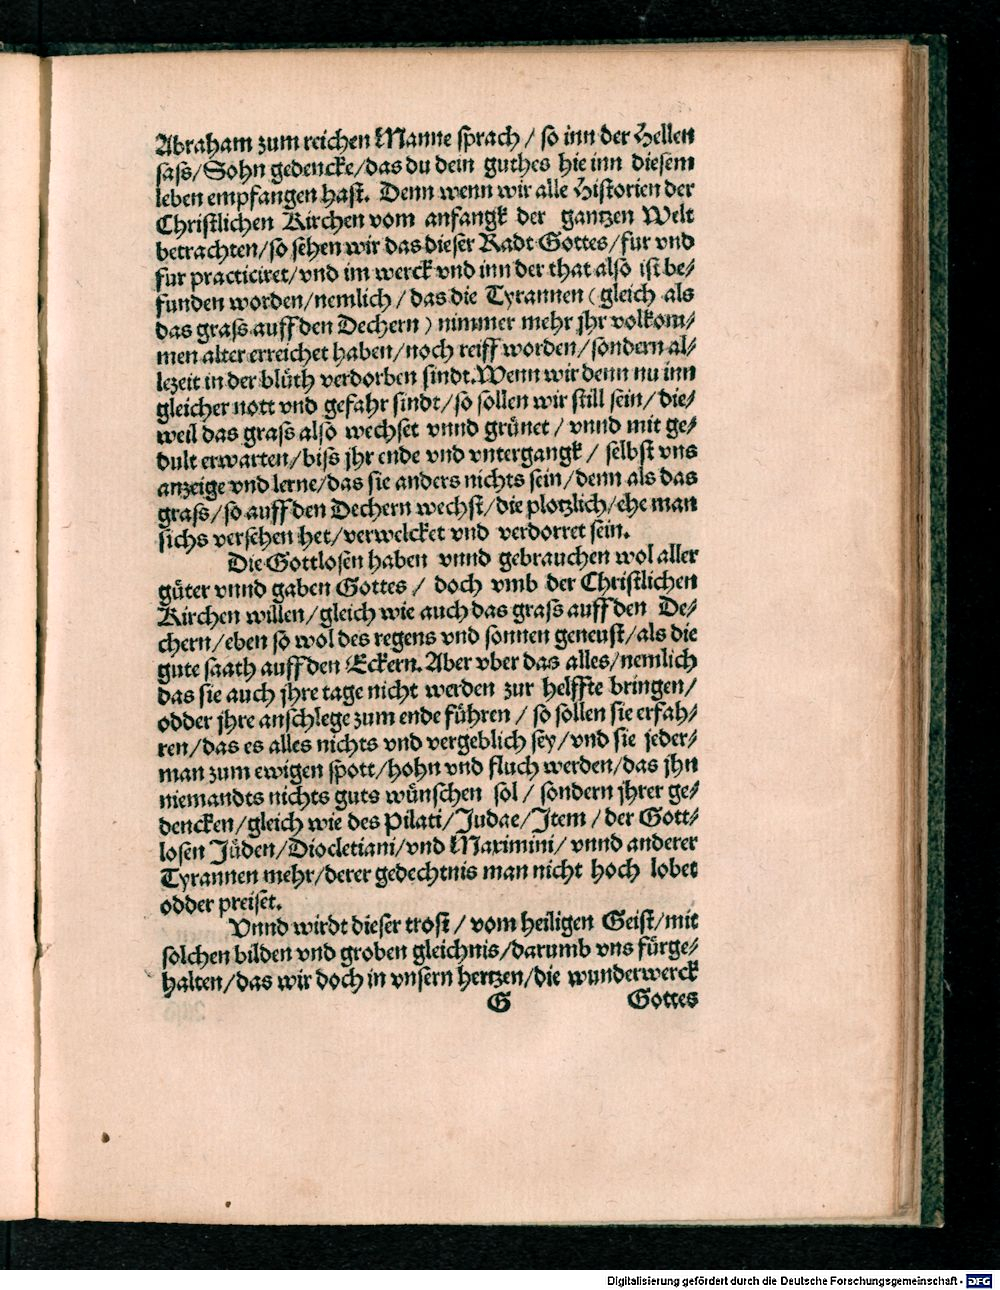 Abraham zum reichen Manne sprach / so inn der Hellen
sass / Sohn gedencke / das du dein guthes hie inn diesem
leben empfangen hast. Denn wenn wir alle Historien der
Christlichen Kirchen vom anfangk der gantzen Welt
betrachten / so sehen wir das dieser Radt Gottes / fur vnd
fur practiciret / vnd im werck vnd inn der that also ist be/
funden worden / nemlich / das die Tyrannen ( gleich als
das grass auff den Dechern ) nimmer mehr jhr volkom/
men alter erreichet haben / noch reiff worden / sondern al/
lezeit in der blüth verdorben sindt. Wenn wir denn nu inn
gleicher nott vnd gefahr sindt / so sollen wir still sein / die/
weil das grass also wechset vnnd grünet / vnnd mit ge/
dult erwarten / biss jhr ende vnd vntergangk / selbst vns
anzeige vnd lerne / das sie anders nichts sein / denn als das
grass / so auff den Dechern wechst / die plotzlich / ehe man
sichs versehen het / verwelcket vnd verdorret sein.
Die Gottlosen haben vnnd gebrauchen wol aller
güter vnnd gaben Gottes / doch vmb der Christlichen
Kirchen willen / gleich wie auch das grass auff den De/
chern / eben so wol des regens vnd sonnen geneust / als die
gute saath auff den Eckern. Aber vber das alles / nemlich
das sie auch jhre tage nicht werden zur helffte bringen /
odder jhre anschlege zum ende führen / so sollen sie erfah/
ren / das es alles nichts vnd vergeblich sey / vnd sie jeder/
man zum ewigen spott / hohn vnd fluch werden / das jhn
niemandts nichts guts wünschen sol / sondern jhrer ge/
dencken / gleich wie des Pilati / Judae / Item / der Gott/
losen Jüden / Diocletiani / vnd Maximini / vnnd anderer
Tyrannen mehr / derer gedechtnis man nicht hoch lobet
odder preiset.
Vnnd wirdt dieser trost / vom heiligen Geist / mit
solchen bilden vnd groben gleichnis / darumb vns fürge/
halten / das wir doch in vnsern hertzen / die wunderwerck
G Gottes
Digitalisierung gefördert durch die Deutsche Forschungsgemeinschaft - DFG